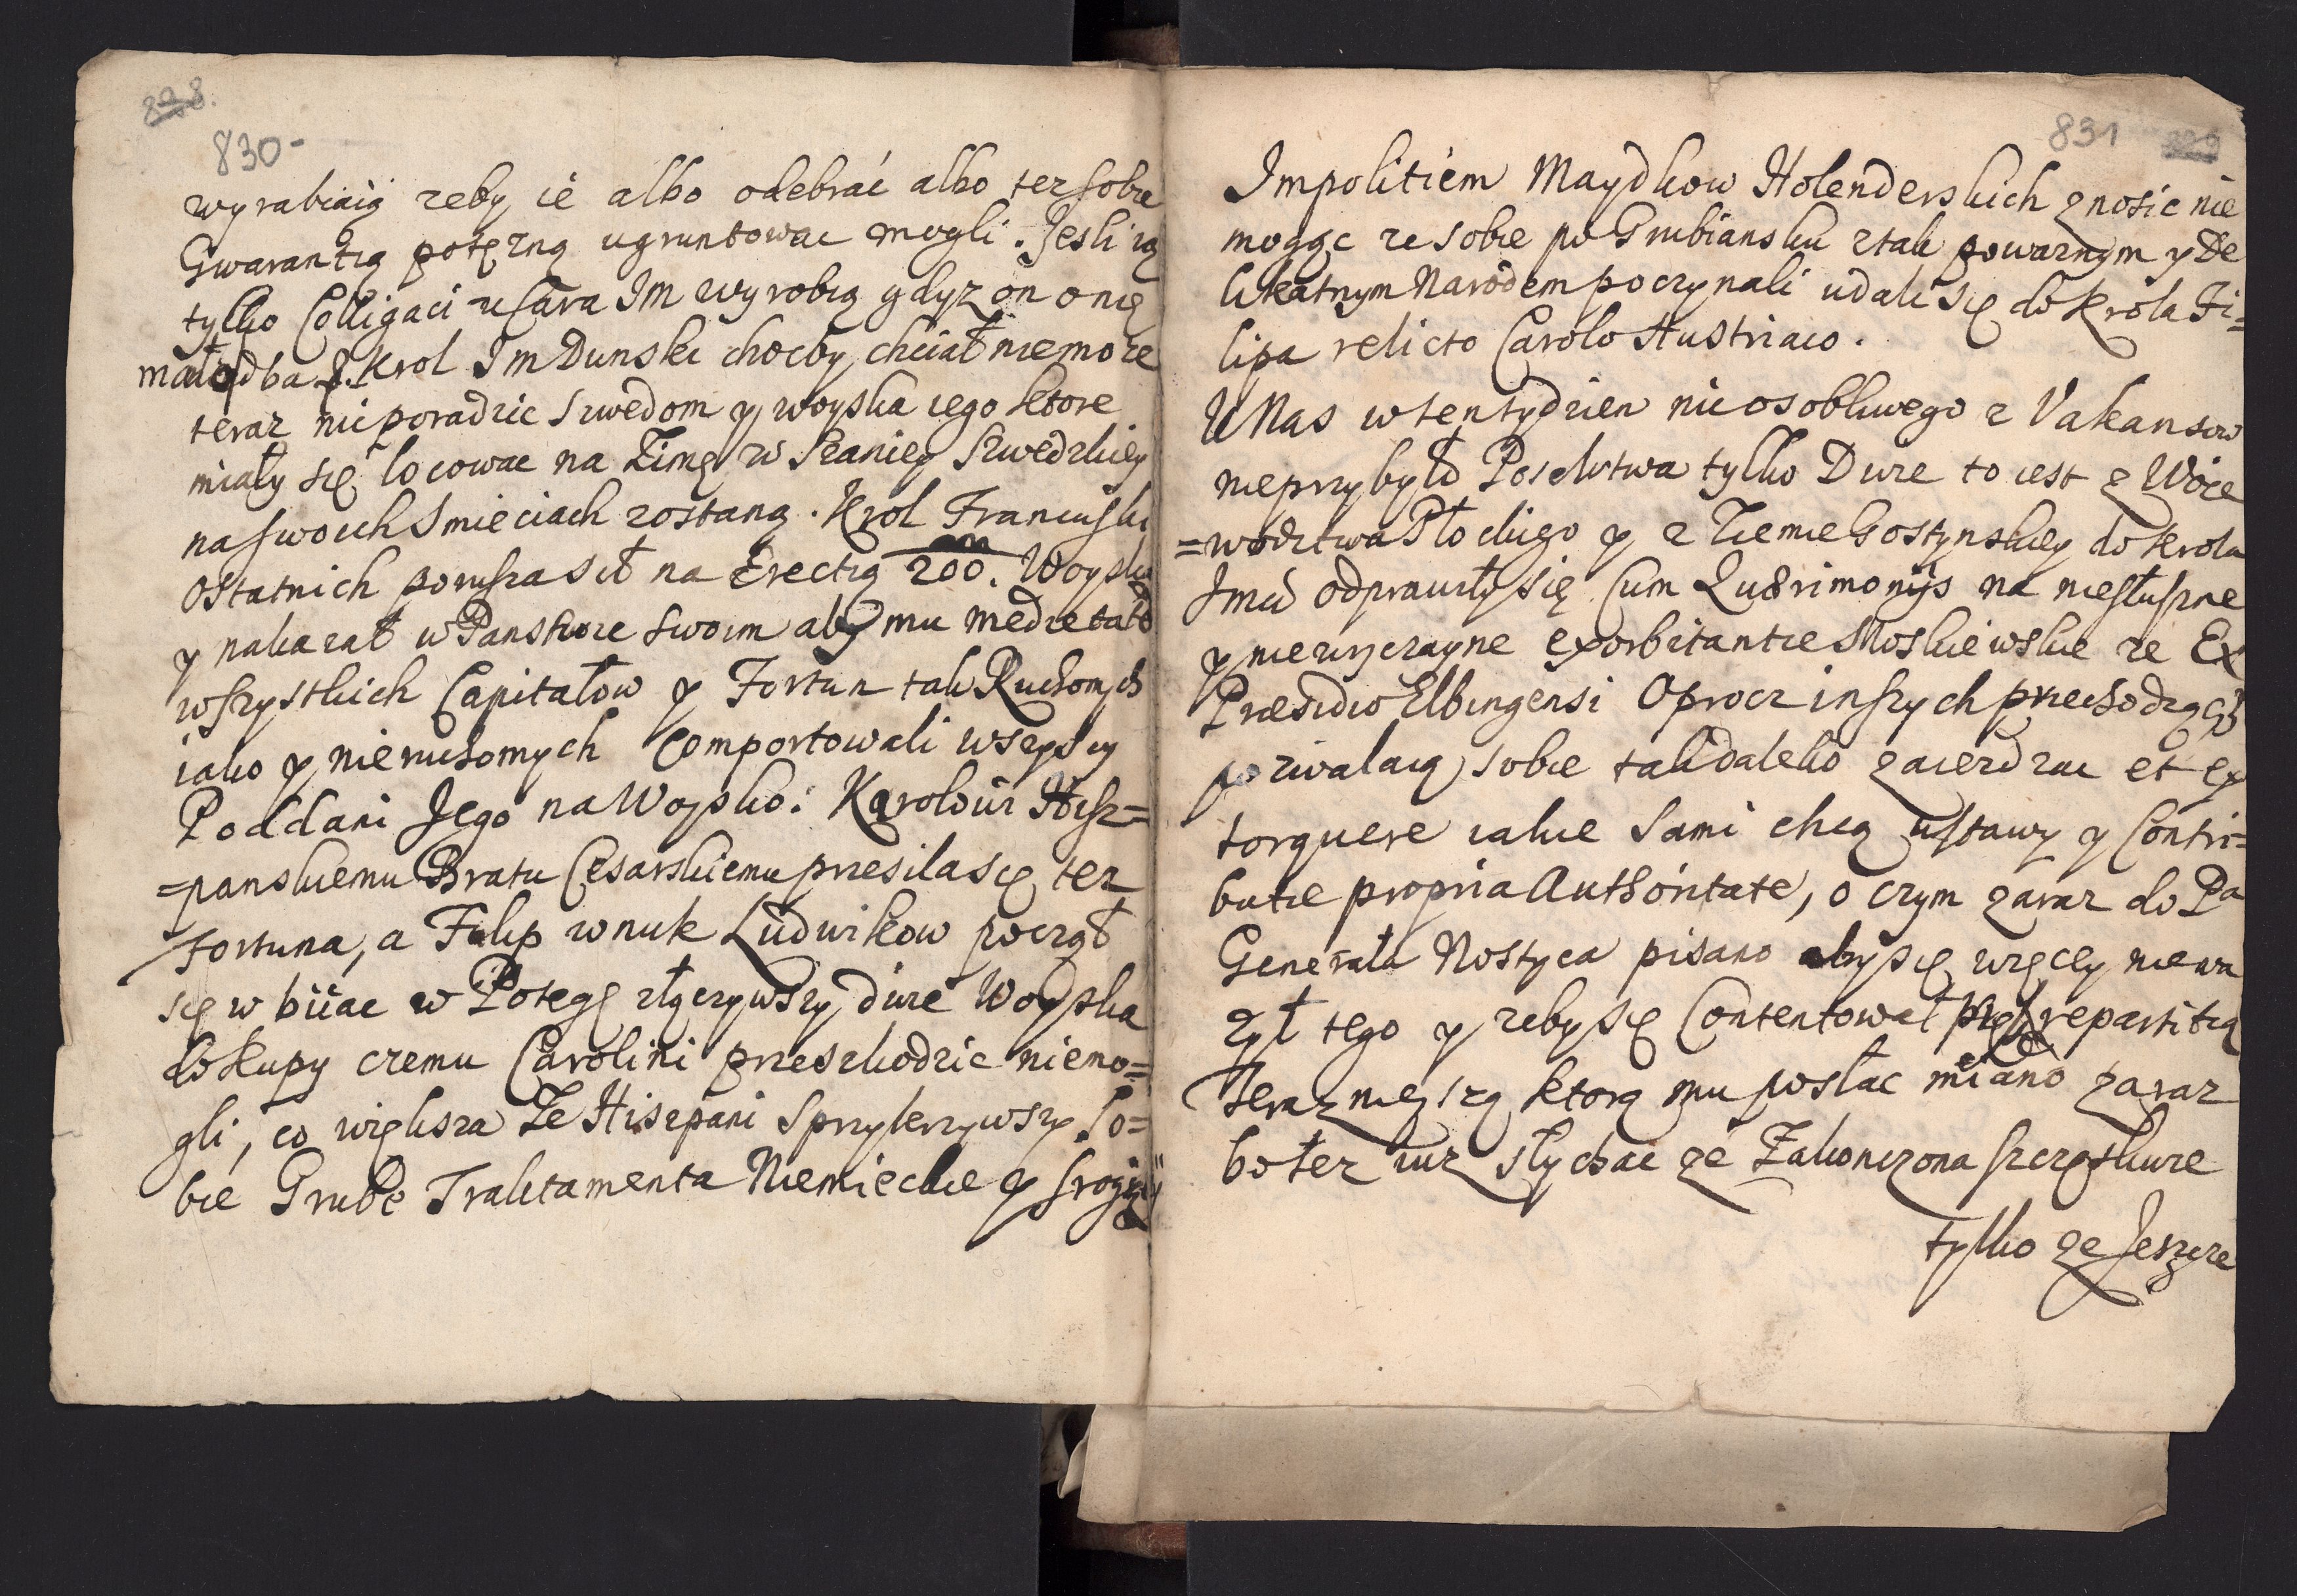 828.
830-
wyrabiaią zeby ié albo odebrać albo tez sobie
Gwarantią potęzną ugruntowac mogli. Jesli ią
tylko Colligaci u Cara Im wyrobią gdyz on o nię
mało dba. Krol Im Dunski chocby chciał nie moze
teraz nic poradzic Szwedom y woyska iego ktore
miały się locowac na Zimę w Skaniey Szwedzkiey
na swoich Smieciach zostaną. Krol Francuski
Ostatnich porusza sił na Erectią 200. Woyska
y nakazał w Panstwie swoim aby mu medietatē
wszystkich Capitałow y Fortun tak Ruchomych
iako y nieruchomych Comportowali wszyscy
Poddani Jego na Woysko. Karolowi Hisz=
=panskiemu Bratu Cesarskiemu przesila się tez
fortuna, a Filip wnuk Ludwikow począł
się w biiac w Potęgę złączywszy dwie Woyska
do kupy czemu Carolini przeszkodzic niemo=
gli, co większa Ze Hiszpani Sprzykrzywszy So=
bie Grube Traktamenta Niemieckie y srogi
831 829
Impolitiem Maydkow Holenderskich znosic nie
mogąc ze sobie po Grubiansku z tak powaznym y De
likatnym Narodem poczynali udali się do Krola Fi=
lipa relicto Carolo Austriaco.
U Nas w ten tydzien nic osobliwego z Vakansow
nieprzybyło Poselstwa tylko Dwie to iest z Woie
=wodztwa Płockiego y z Ziemie Gostynskiey do Krola
Jmci odprawiły się Cum Quærimonijs na niesłuszne
y niezwyczayne exorbitantie Moskiewskie ze Ex
Præsidio Elbingensi Oprocz inszych przechodzących
pozwalaią sobie tak daleko zaierdzac et ex
torquere iakie sami chcą ustawy y Contri=
butie propria Authoritate, o czym zaraz do Pa
Generała Nostyca pisano aby się więcey niewa
zył tego y zeby się Contentował repartitią
teraznieyszą ktorą mu posłac miano zaraz
bo tez iuz słychac ze Zakonczona szczęsliwie
tylko ze Jeszcze